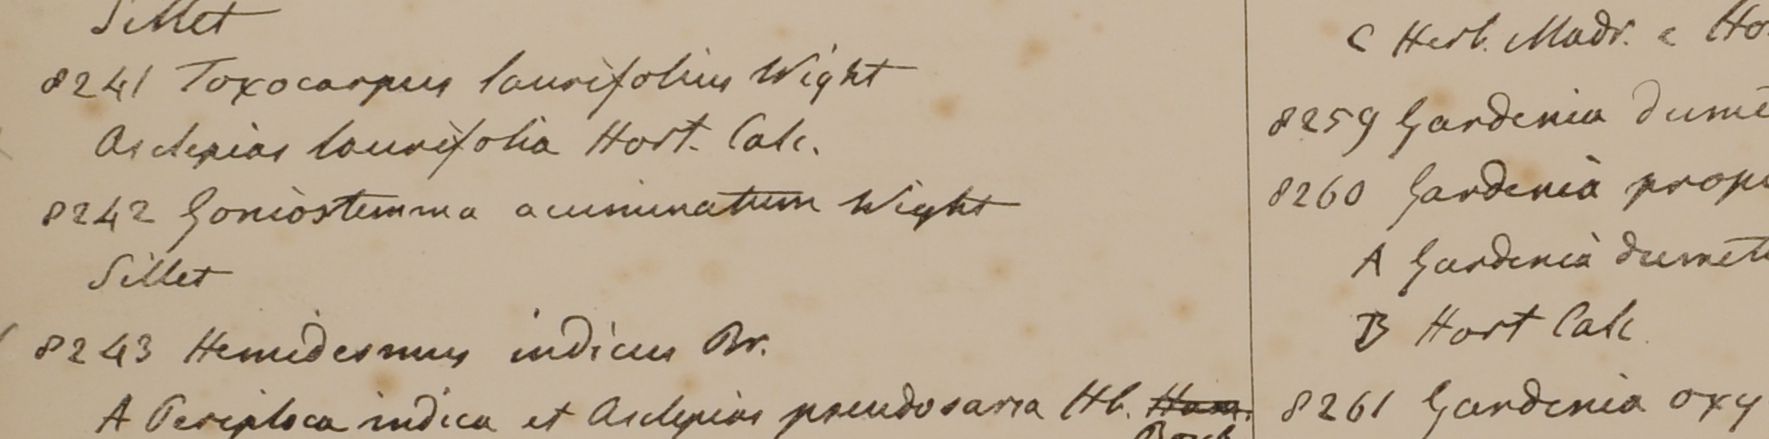 Sillet
8241 Toxocarpus laurifolius Wight
Asclepias laurifolia Hort. Calc.
8242 Goniostemma acuminatum Wight
Sillet
8243 Hemidesmus indicus Br.
A Periploca indica et Asclepias pseudosarsa Hb. Ham.
C Herb. Madr. e
8259 Gardenia dume
8260 Gardenia prop
A Gardenia dumet
B Hort Calc
8261 Gardenia oxy